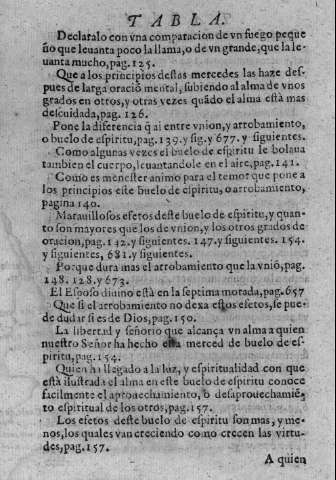 TABLA.
Declaralo con vna comparacion de vn fuego peque
ño que leuanta poco la llama, o de vn grande, que la le-
uanta mucho, pag. 125.
Que a los principios destas mercedes las haze des-
pues de larga oració mental, subiendo al alma de vnos
grados en otros, y otras vezes quãdo el alma està mas
descuidada, pag. 126.
Pone la diferencia q̃ ai entre vnion, y arrobamiento,
o buelo de espiritu, pag. 139. y sig. y 677. y siguientes.
Como algunas vezes el buelo de espiritu le bolaua
tambien el cuerpo, leuantandole en el aire, pag. 141.
Como es menester animo para el temor que pone a
los principios este buelo de espiritu, o arrobamiento,
pagina 140.
Marauillosos efetos deste buelo de espiritu, y quan-
to son mayores que los de vnion, y los otros grados de
oracion, pag. 142. y siguientes. 147. y siguientes. 154.
y siguientes, 681. y siguientes.
Porque dura mas el arrobamiento que la vniõ, pag.
148. 128. y 673.
El Esposo diuino està en la septima morada, pag. 657
Que si el arrobamiento no dexa estos efetos, se pue-
de dudar si es de Dios, pag. 150.
La libertad y señorio que alcança vn alma a quien
nuestro Señor ha hecho esta merced de buelo de es-
piritu, pag. 154.
Quien ha llegado a la luz, y espiritualidad con que
està ilustrada el alma en este buelo de espiritu conoce
facilmente el aprouechamiento, o desaprouechamiẽ-
to espiritual de los otros, pag. 157.
Los efetos deste buelo de espiritu son mas, y me-
nos, los quales van creciendo como crecen las virtu-
des, pag. 157.
A quien